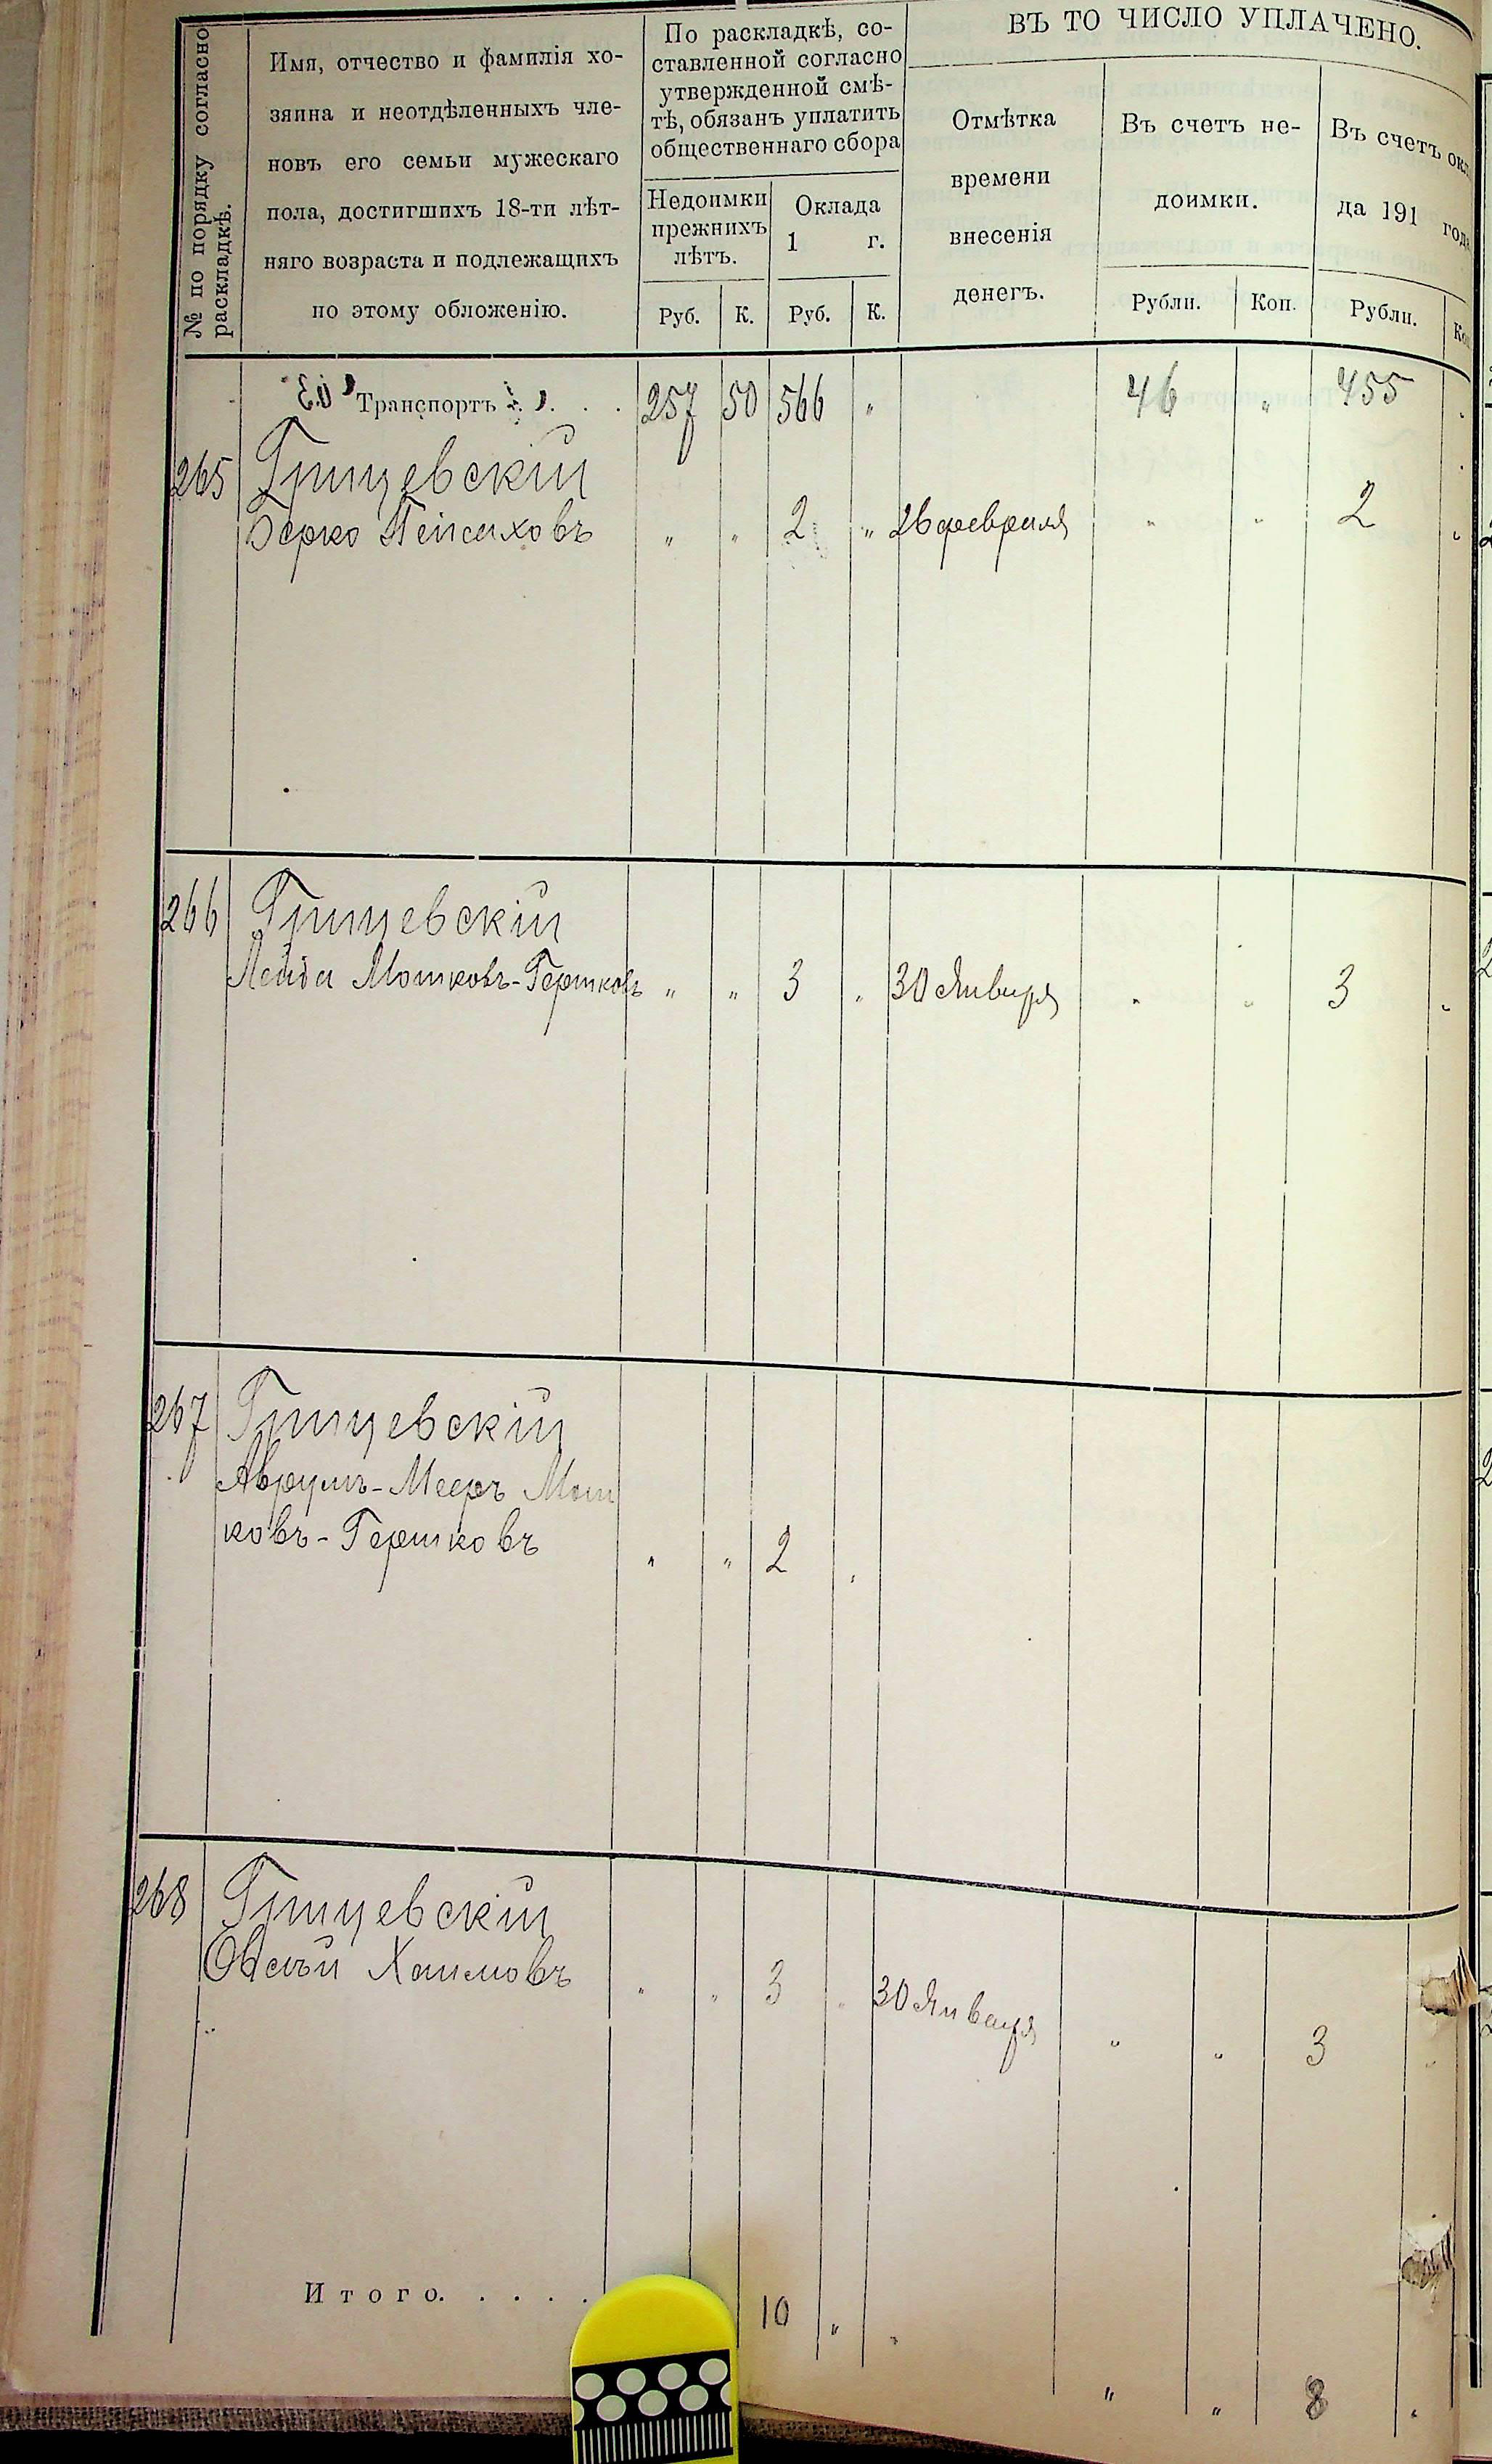 № по порядку согласно
раскладкѣ.
Имя, отчество и фамилія хо-
зяина и неотдѣленныхъ чле-
новъ его семьи мужескаго
пола, достигшихъ 18-ти лѣт-
няго возраста и подлежащихъ
по этому обложенію.
По раскладкѣ, со-
ставленной согласно
утвержденной смѣ-
тѣ, обязанъ уплатить
общественнаго сбора
Недоимки
прежнихъ
лѣтъ.
Оклада
1 г.
Руб. К. Руб. К.
ВЪ ТО ЧИСЛО УПЛАЧЕНО.
Отмѣтка
времени
внесенія
денегъ.
Въ счетъ не-
доимки.
Рубли. Коп.
Въ счетъ окл
да 191 года
Рубли. Ко
Транспортъ . . . 257 50 566 " 46 " 455 "
265 Грицевскій
Берко Пейсаховъ " " 2 " 26 февраля " " 2 "
266 Грицевскій
Лейба Мошковъ-Гершковъ " " 3 " 30 Января " " 3 "
267 Грицевскій
Аврумъ-Мееръ Мош
ковъ-Гершковъ " " 2 "
268 Грицевскій
Овсѣй Хаимовъ " " 3 " 30 Января " " 3 "
Итого. . . . . 10 " " " " 8 "